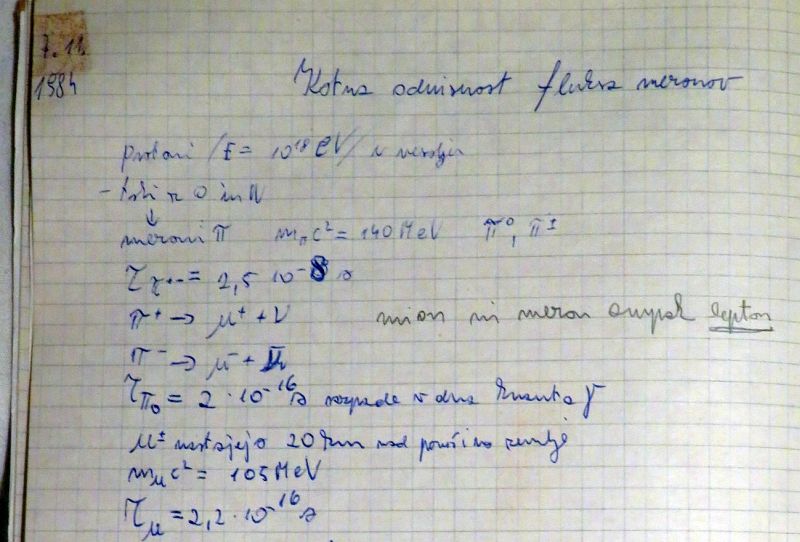 7.11.
1984
Kotna odvisnost fluksa mezonov
protoni /E = 10¹⁸ eV/ v vesolju
- trki z O in N
↓
mezoni π   mπc² = 140 MeV   π⁰, π±
= 2,5 10⁻⁸ s
π⁺ → μ⁺ + ν   mion ni mezon ampak lepton
π⁻ → μ⁻ +
τπ₀ = 2·10⁻¹⁶ s razpade v dva kvanta γ
μ± nastajejo 20 km nad površino zemlje
mμc² = 105 MeV
τμ = 2,2·10⁻¹⁶ s